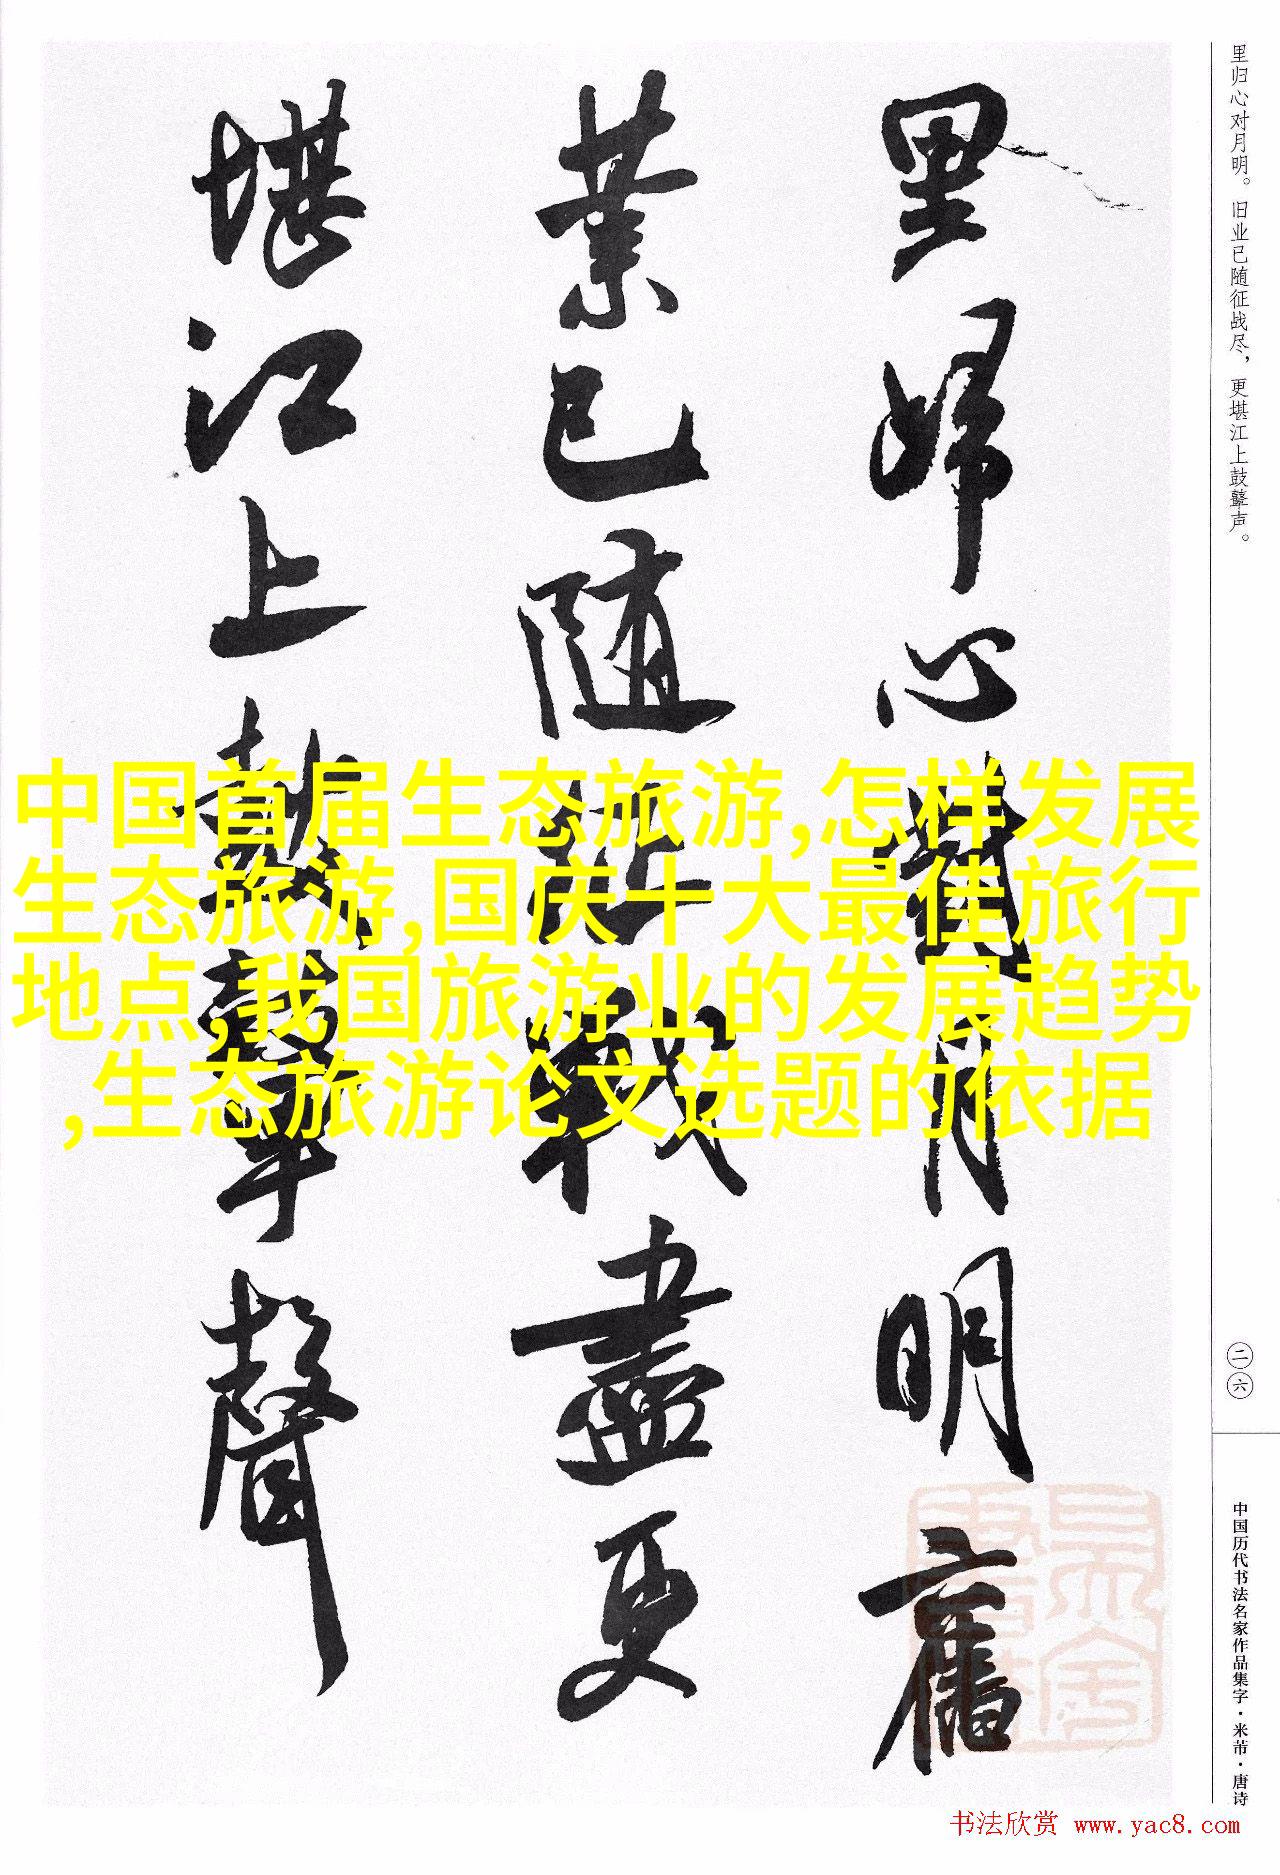 里歸心對月明舊
業已随征戰盡更
堪江上鼓鼙聲
里归心对月明。旧业已随征战尽，更堪江上鼓鼙声。
二六
中国历代书法名家作品集字·米芾·唐诗
中国首届生态旅游,怎样发展
生态旅游,国庆十大最佳旅行
地点,我国旅游业的发展趋势
,生态旅游论文选题的依据
书法欣赏 www.yac8.com